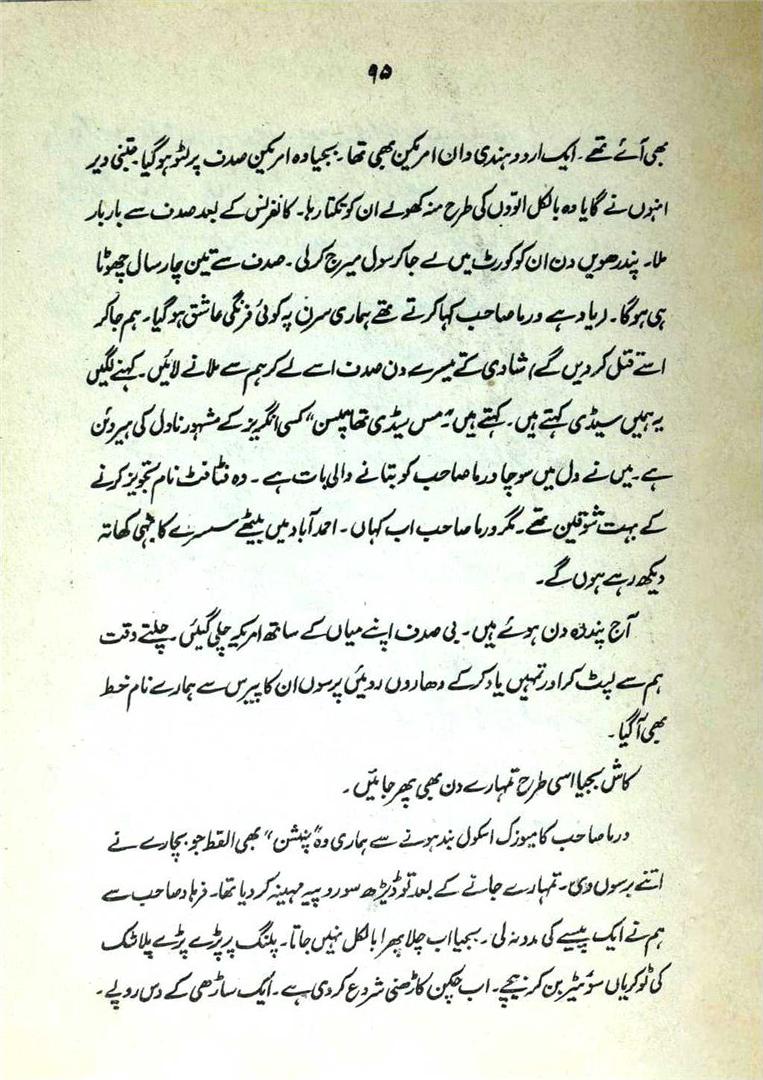 ۹۵
بھی آئے تھے۔ ایک اردو ہندی دان امریکن بھی تھا۔ بجیا وہ امریکن صدف پر لٹو ہو گیا۔ جتنی دیر
انہوں نے گایا وہ بالکل الوؤں کی طرح منہ کھولے ان کو تکتا رہا۔ کانفرنس کے بعد صدف سے بار بار
ملا۔ پندرھویں دن ان کو کورٹ میں لے جا کر سول میرج کرلی۔ صدف سے تین چار سال چھوٹا
ہی ہو گا۔ (یاد ہے ورما صاحب کہا کرتے تھے ہماری سرن پہ کوئی فرنگی عاشق ہو گیا۔ ہم جا کر
اسے قتل کر دیں گے) شادی کے تیسرے دن صدف اسے لے کر ہم سے ملانے لائیں۔ کہنے لگیں
یہ ہمیں سیڈی کہتے ہیں۔ کہتے ہیں "مس سیڈی تھامپسن" کسی انگریز کے مشہور ناول کی ہیروئن
ہے۔ میں نے دل میں سوچا ورما صاحب کو بتانے والی بات ہے۔ وہ فٹافٹ نام تجویز کرنے
کے بہت شوقین تھے۔ مگر ورما صاحب اب کہاں۔ احمد آباد میں بیٹھے سسرے کا بہی کھاتہ
دیکھ رہے ہوں گے۔
آج پندرہ دن ہوئے ہیں۔ بی صدف اپنے میاں کے ساتھ امریکہ چلی گئیں۔ چلتے وقت
ہم سے لپٹ کر اور تمہیں یاد کر کے دھاروں روئیں پرسوں ان کا پیرس سے ہمارے نام خط
بھی آ گیا۔
کاش بجیا اسی طرح تمہارے دن بھی پھر جائیں۔
ورما صاحب کا میوزک اسکول بند ہونے سے ہماری وہ "پنشن" بھی القط جو بچارے نے
اتنے برسوں دی۔ تمہارے جانے کے بعد تو ڈیڑھ سو روپیہ مہینہ کر دیا تھا۔ فرہاد صاحب سے
ہم نے ایک پیسے کی مدد نہ لی۔ بجیا اب چلا پھرا بالکل نہیں جاتا۔ پلنگ پر پڑے پڑے پلاسٹک
کی ٹوکریاں سوئیٹر بن کر بیچے۔ اب چکن کاڑھنی شروع کر دی ہے۔ ایک ساڑھی کے دس روپے۔